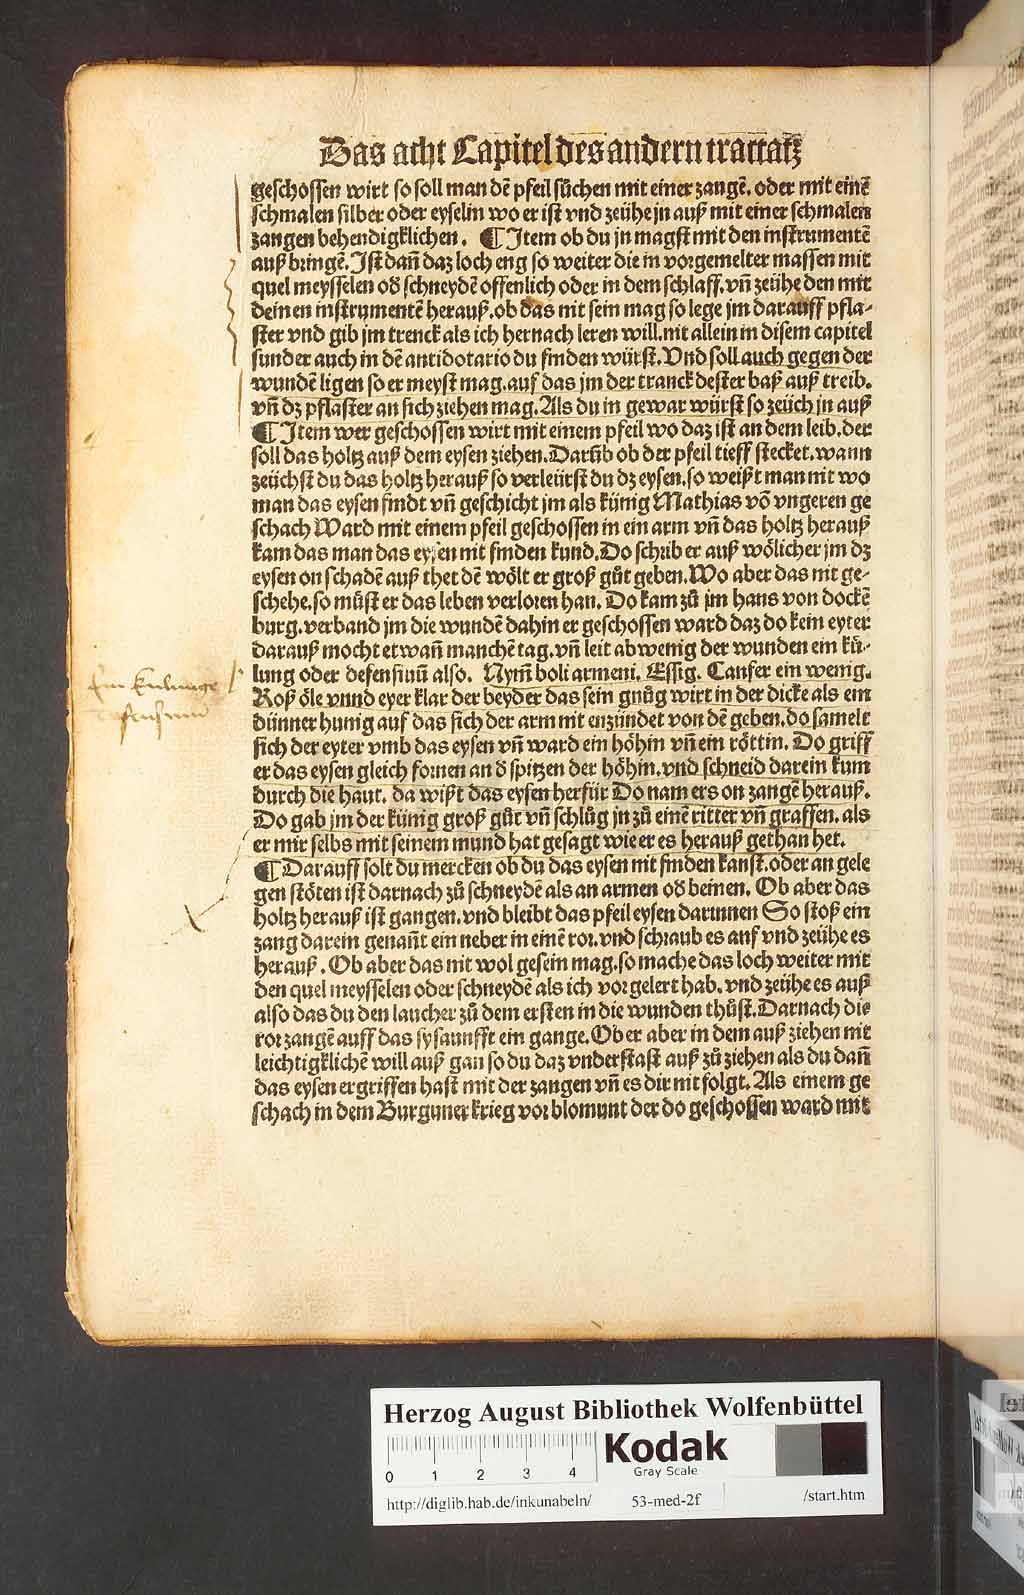 Das acht Capitel des andern tractatz
geschossen wirt so soll man dē pfeil sůchen mit einer zangē. oder mit einē
schmalen silber oder eyselin wo er ist vnd zeühe jn auß mit einer schmalen
zangen behendigklichen. ¶ Item ob du jn magst mit den instrumentē
auß bringē. Ist dañ daz loch eng so weiter die in vorgemelter massen mit
quel meysselen od̄ schneydē offenlich oder in dem schlaff. vñ zeühe den mit
deinen instrumentē herauß. ob das nit sein mag so lege jm darauff pfla-
ster vnd gib jm trenck als ich hernach leren will. nit allein in disem capitel
sunder auch in dē antidotario du finden würst. Vnd soll auch gegen der
wundē ligen so er meyst mag. auf das jm der tranck dester baß auß treib.
vñ dz pflaster an sich ziehen mag. Als du in gewar würst so zeüch jn auß
¶ Item wer geschossen wirt mit einem pfeil wo daz ist an dem leib. der
soll das holtz auß dem eysen ziehen. Darūb ob der pfeil tieff stecket. wann
zeüchst du das holtz herauß so verleürst du dz eysen. so weißt man nit wo
man das eysen findt vñ geschicht jm als künig Mathias vō vngeren ge
schach Ward mit einem pfeil geschossen in ein arm vñ das holtz herauß
kam das man das eysen nit finden kund. Do schrib er auß wölicher jm dz
eysen on schadē auß thet dē wölt er groß gůt geben. Wo aber das nit ge-
schehe. so můst er das leben verloren han. Do kam zů jm hans von dockē
burg. verband jm die wundē dahin er geschossen ward daz do kein eyter
darauß mocht etwañ manchē tag. vñ leit ab wenig der wunden ein kü-
lung oder defensiuū also. Nym̄ boli armeni. Essig. Canfer ein wenig.
Roß öle vnnd eyer klar der beyder das sein gnůg wirt in der dicke als ein
dünner hunig auf das sich der arm nit enzündet von dē geben. do samelt
sich der eyter vmb das eysen vñ ward ein höhin vñ ein röttin. Do griff
er das eysen gleich fornen an d̄ spitzen der höhin. vnd schneid darein kum
durch die haut. da wißt das eysen herfür Do nam ers on zangē herauß.
Do gab jm der künig groß gůt vñ schlůg jn zů einē ritter vñ graffen. als
er mir selbs mit seinem mund hat gesagt wie er es herauß gethan het.
¶ Darauff solt du mercken ob du das eysen nit finden kanst. oder an gele
gen stöten ist darnach zů schneydē als an armen od̄ beinen. Ob aber das
holtz herauß ist gangen. vnd bleibt das pfeil eysen darinnen So stoß ein
zang darein genañt ein neber in einē ror. vnd schraub es auf vnd zeühe es
herauß. Ob aber das nit wol gesein mag. so mache das loch weiter mit
den quel meysselen oder schneydē als ich vor gelert hab. vnd zeühe es auß
also das du den laucher zů dem ersten in die wunden thůst. Darnach die
ror zangē auff das sysaunfft ein gange. Ob er aber in dem auß ziehen nit
leichtigklichē will auß gan so du daz vnderstast auß zů ziehen als du dañ
das eysen ergriffen hast mit der zangen vñ es dir nit folgt. Als einem ge
schach in dem Burguner krieg vor blomunt der do geschossen ward mit
Herzog August Bibliothek Wolfenbüttel
0 1 2 3 4
Kodak
Gray Scale
http://diglib.hab.de/inkunabeln/ 53-med-2f /start.htm